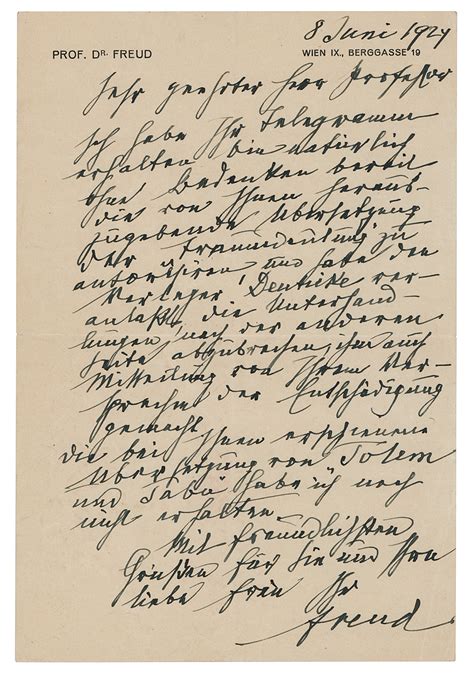 8 Juni 1924
PROF. DR. FREUD
WIEN IX., BERGGASSE 19
Sehr geehrter Herr Professor
Ich habe Ihr Telegramm
erhalten bin natürlich
ohne Bedenken bereit
die von Ihnen heraus-
zugebende Übersetzung
der Traumdeutung zu
autorisiren und habe den
Verleger, Deuticke ver-
anlaßt, die Unterhand-
lungen nach der anderen
Seite abzubrechen, ihm auch
Mitteilung von Ihrem Ver-
sprechen der Entschädigung
gemacht
Die bei Ihnen erschienene
Übersetzung von Totem
und Tabu habe ich noch
nicht erhalten.
Mit freundlichsten
Grüßen für Sie und Ihre
liebe Frau
Ihr
Freud